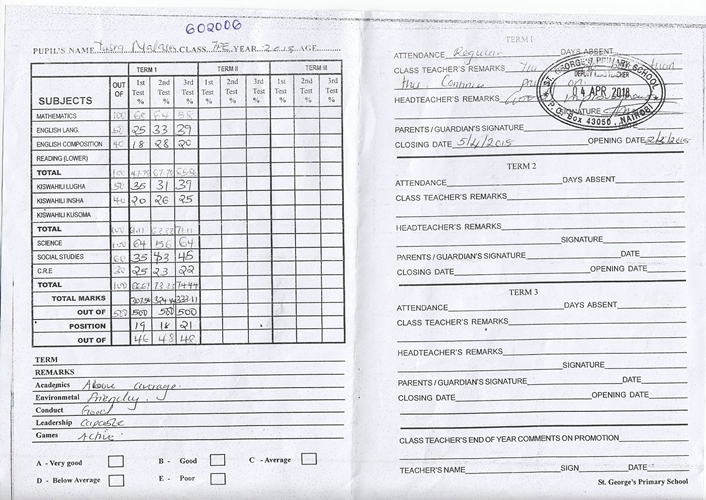 602006
PUPIL'S NAME CLASS YEAR 2018 AGE
TERM I TERM II TERM III
SUBJECTS OUT OF 1st Test % 2nd Test % 3rd Test % 1st Test % 2nd Test % 3rd Test % 1st Test % 2nd Test % 3rd Test %
MATHEMATICS 100 68 64 58
ENGLISH LANG. 50 25 33 39
ENGLISH COMPOSITION 40 18 28 20
READING (LOWER)
TOTAL 100
KISWAHILI LUGHA 50 35 31 39
KISWAHILI INSHA 40 20 26 25
KISWAHILI KUSOMA
TOTAL 100
SCIENCE 100 64 56 64
SOCIAL STUDIES 60 35 43 45
C.R.E 30 25 23 22
TOTAL 100 66.67 73.33 74.44
TOTAL MARKS 333.11
OUT OF 500 500 500 500
POSITION 19 18 21
OUT OF 46 48 48
TERM
REMARKS
Academics Above average.
Environmetal Friendly.
Conduct Good
Leadership Capable
Games Active
A - Very good B - Good C - Average
D - Below Average E - Poor
TERM 1
ATTENDANCE Regular DAYS ABSENT
CLASS TEACHER'S REMARKS
HEADTEACHER'S REMARKS
SIGNATURE
ST. GEORGE'S PRIMARY SCHOOL
DEPUTY HEADTEACHER
04 APR 2018
P. O. Box 43050, NAIROBI
PARENTS / GUARDIAN'S SIGNATURE
CLOSING DATE 5/4/2018 OPENING DATE
TERM 2
ATTENDANCE DAYS ABSENT
CLASS TEACHER'S REMARKS
HEADTEACHER'S REMARKS
SIGNATURE
PARENTS / GUARDIAN'S SIGNATURE DATE
CLOSING DATE OPENING DATE
TERM 3
ATTENDANCE DAYS ABSENT
CLASS TEACHER'S REMARKS
HEADTEACHER'S REMARKS
SIGNATURE
PARENTS / GUARDIAN'S SIGNATURE DATE
CLOSING DATE OPENING DATE
CLASS TEACHER'S END OF YEAR COMMENTS ON PROMOTION
TEACHER'S NAME SIGN DATE
St. George's Primary School